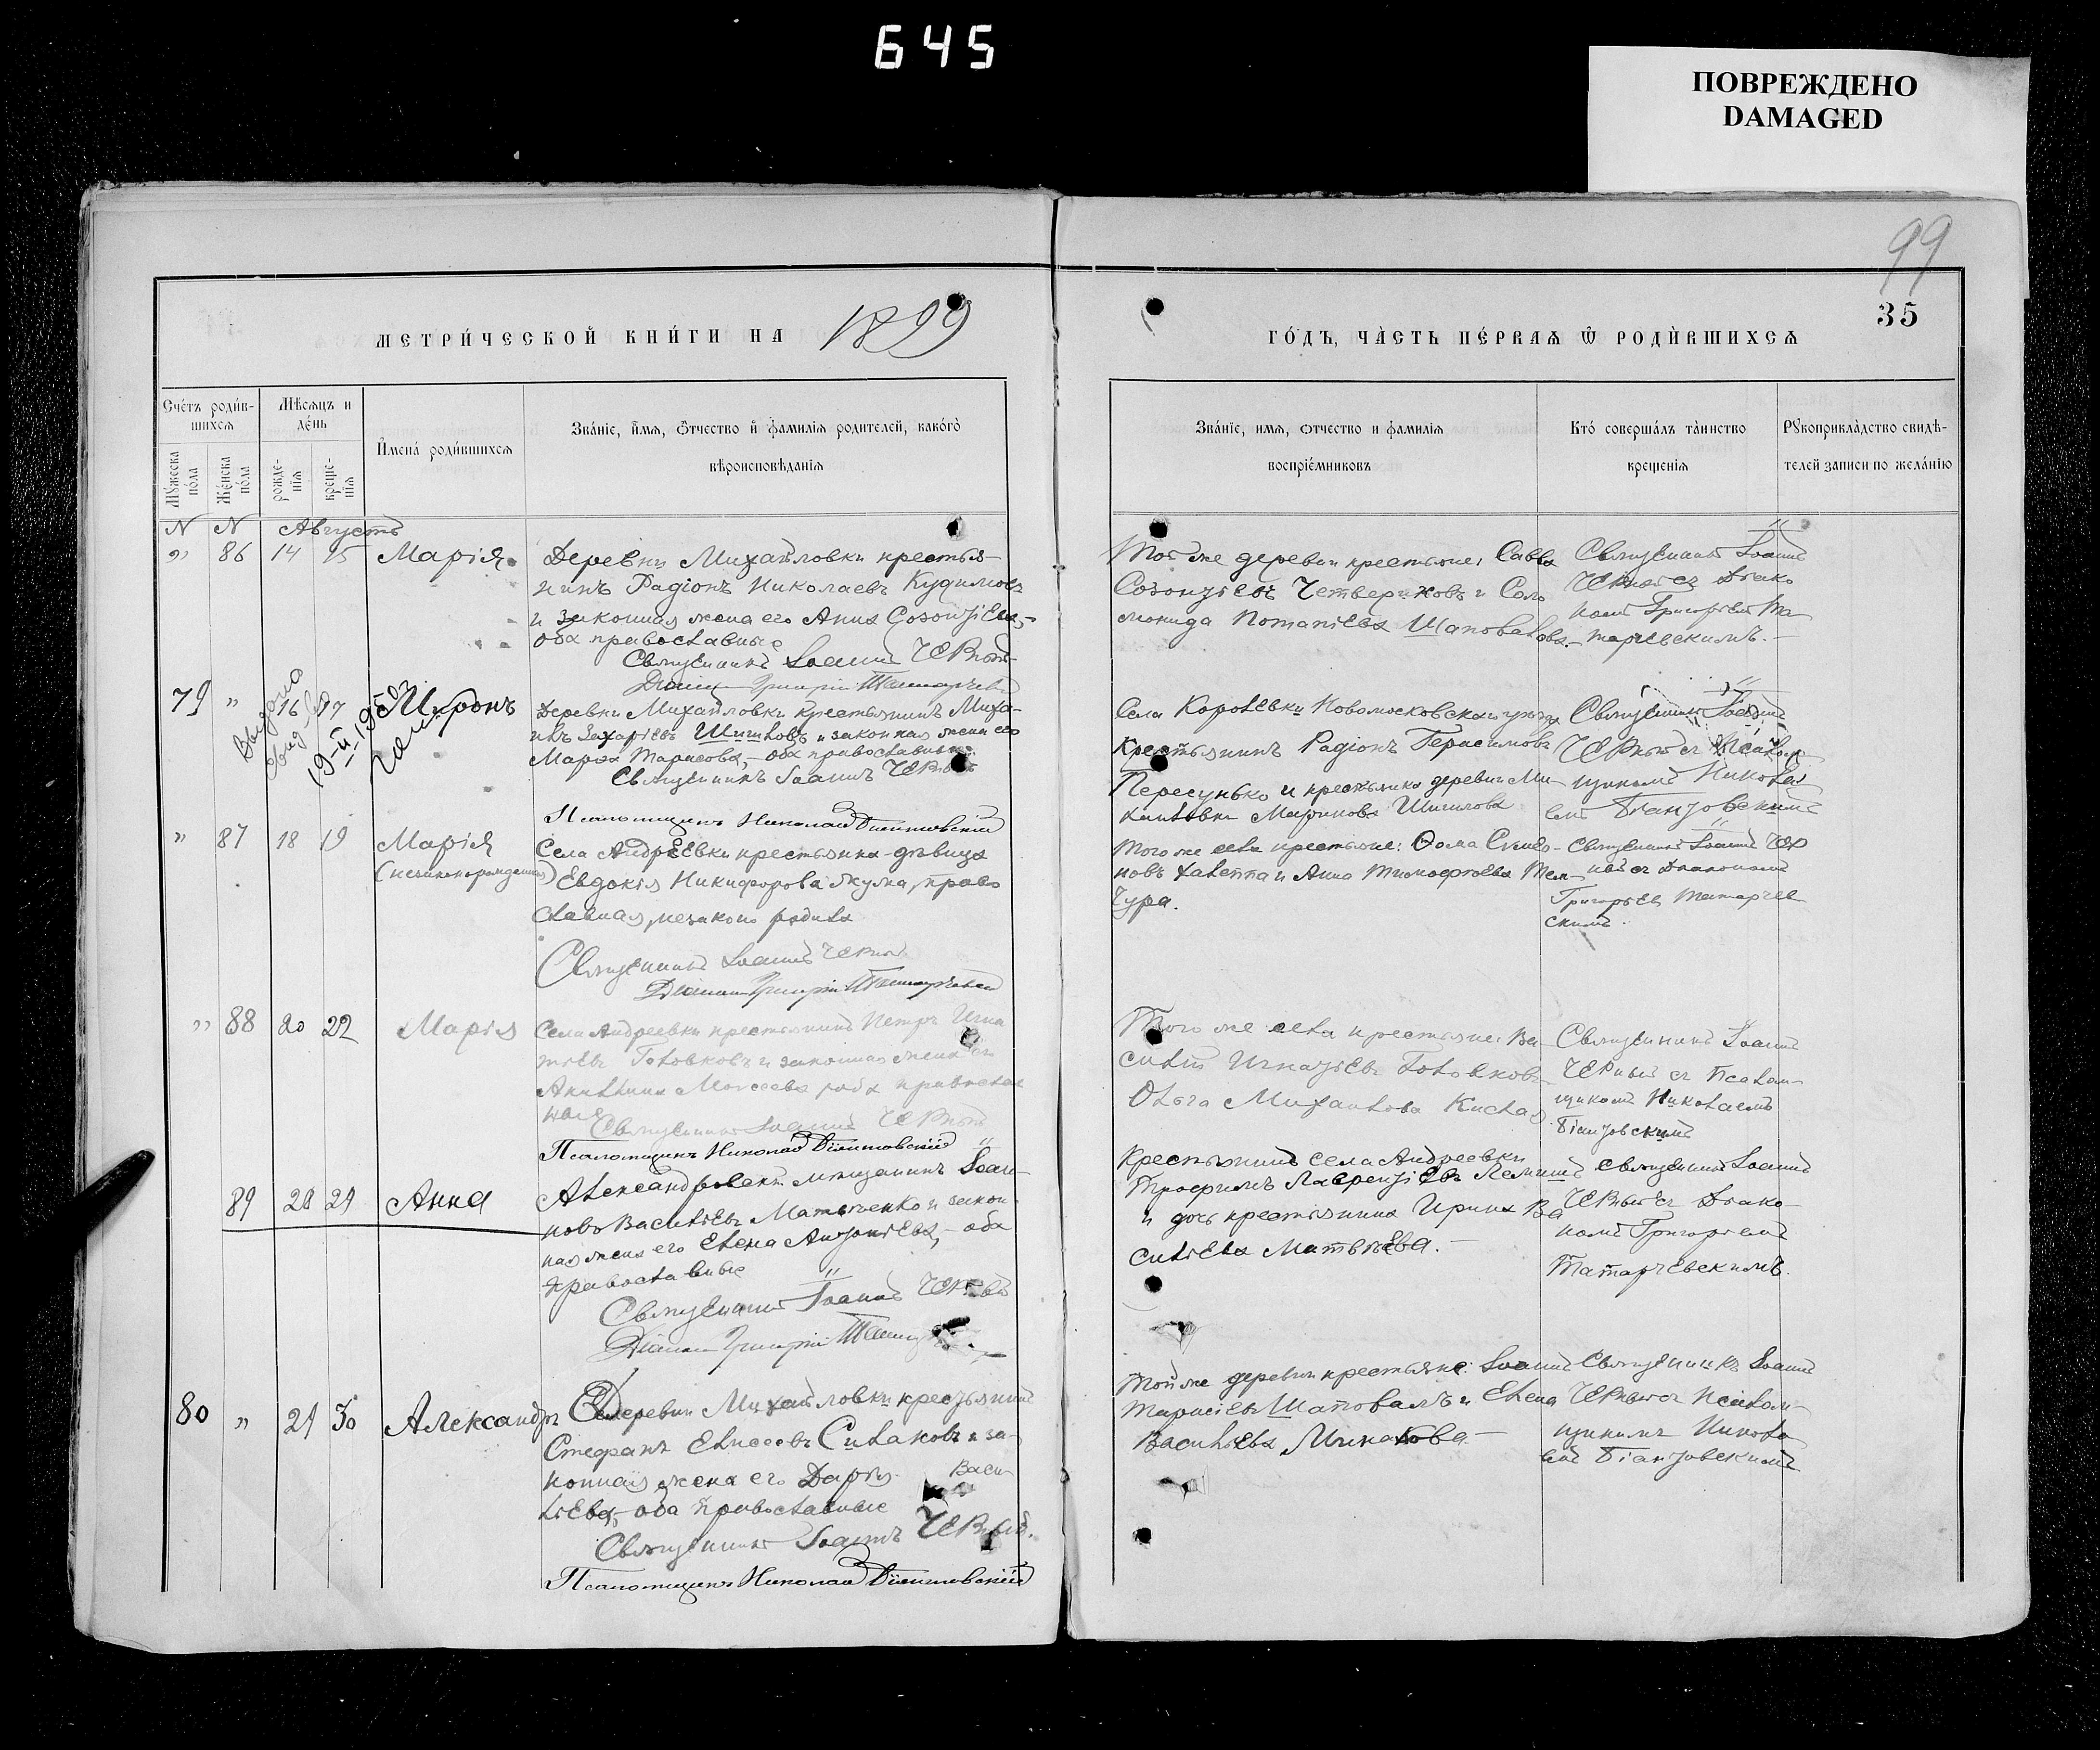 645
ПОВРЕЖДЕНО
DAMAGED
99
35
МЕТРИЧЕСКОЙ КНИГИ НА 1899
ГОДЪ, ЧАСТЬ ПЕРВАЯ Ѿ РОДИВШИХСЯ
Счетъ родив-
шихся
Мѣсяцъ и
день
Мужеска
пола
Женска
пола
рожде-
нія
креще-
нія
Имена родившихся
Званіе, имя, отчество и фамилія родителей, какого
вѣроисповѣданія
Званіе, имя, отчество и фамилія
воспріемниковъ
Кто совершалъ таинство
крещенія
Рукоприкладство свидѣ-
телей записи по желанію
N N Августъ
" 86 14 15 Марія
Деревни Михайловки крестья-
нинъ Радіонъ Николаевъ Кудимовъ
и законная жена его Анна Созонтіева,-
оба православные
Священникъ Іоаннъ Черный
Той же деревни крестьяне: Савва
Созонтіевъ Четвериковъ и Соло
монида Потапіева Шаповалова.-
Священникъ Іоаннъ
Черный съ Діако
номъ Григоріемъ Та
тарчевскимъ.-
79 " 16 17 Миронъ
Выдано
19-й 1905
Деревни Михайловки крестьянинъ Миха-
илъ Захаріевъ Шишловъ и законная жена его
Марѳа Тарасова,- оба православные
Священникъ Іоаннъ Черный
Псаломщикъ Николай
Села Королевки Новомосковскаго уѣзда
Крестьянинъ Радіонъ Герасимовъ
Пересунько и крестьянка деревни Ми-
хайловки
Священникъ Іоаннъ
Черный съ Псалом-
щикомъ Никола
емъ
" 87 18 19 Марія
(незаконорожденная)
Села Андреевки крестьянка-дѣвица
Евдокія Никифорова Якума, право
славная, незаконо родила
Священникъ Іоаннъ Черный
Того же села крестьяне: Ѳома Симео-
новъ Халеппа и Анна Тимоѳеева Тем-
чура.
Священникъ Іоаннъ Чер
ный съ Діакономъ
Григоріемъ Татарчев
скимъ.
" 88 20 22 Марія
Села Андреевки крестьянинъ Петръ Игна
тіевъ Головковъ и законная жена его
Акилина Моисеева, оба православ
ные
Священникъ Іоаннъ Черный
Псаломщикъ Николай
Того же села крестьяне: Ва-
силій Игнатіевъ Головковъ
Ольга Михаилова Кислая
Священникъ Іоаннъ
Черный съ Псалом-
щикомъ Николаемъ
89 28 29 Анна
Александровскій мѣщанинъ Іоан-
новъ Василіевъ Матвіенко и закон-
ная жена его Елена Антоніева,- оба
православные
Священникъ Іоаннъ Черный
Крестьянинъ села Андреевки
Трофимъ Лаврентіевъ
и дочь крестьянина Ирина Ва
силіева Матвѣева.-
Священникъ Іоаннъ
Черный съ Діако-
номъ Григоріемъ
Татарчевскимъ.
80 " 29 30 Александръ
Деревни Михайловки крестьянинъ
Стефанъ Елисеевъ Силаковъ и за-
конная жена его Дарія Васи-
ліева,- оба православные
Священникъ Іоаннъ Черный.
Псаломщикъ Николай
Той же деревни крестьяне: Іоаннъ
Тарасіевъ Шаповалъ и Елена
Василіева Минакова.-
Священникъ Іоаннъ
Черный съ Псалом-
щикомъ Никола
емъ